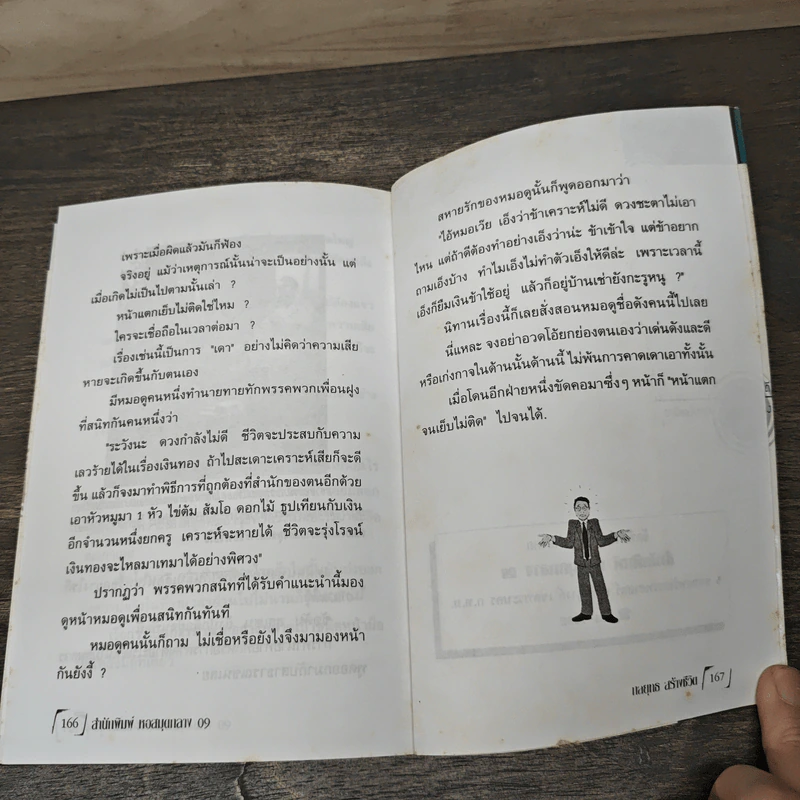 เพราะเมื่อผิดแล้วมันก็ฟ้อง
จริงอยู่ แม้ว่าเหตุการณ์นั้นน่าจะเป็นอย่างนั้น แต่
เมื่อเกิดไม่เป็นไปตามนั้นเล่า ?
หน้าแตกเย็บไม่ติดใช่ไหม ?
ใครจะเชื่อถือในเวลาต่อมา ?
เรื่องเช่นนี้เป็นการ "เดา" อย่างไม่คิดว่าความเสีย
หายจะเกิดขึ้นกับตนเอง
มีหมอดูคนหนึ่งทำนายทายทักพรรคพวกเพื่อนฝูง
ที่สนิทกันคนหนึ่งว่า
"ระวังนะ ดวงกำลังไม่ดี ชีวิตจะประสบกับความ
เลวร้ายได้ในเรื่องเงินทอง ถ้าไปสะเดาะเคราะห์เสียก็จะดี
ขึ้น แล้วก็จงมาทำพิธีการที่ถูกต้องที่สำนักของตนอีกด้วย
เอาหัวหมูมา 1 หัว ไข่ต้ม ส้มโอ ดอกไม้ ธูปเทียนกับเงิน
อีกจำนวนหนึ่งยกครู เคราะห์จะหายได้ ชีวิตจะรุ่งโรจน์
เงินทองจะไหลมาเทมาได้อย่างพิศวง"
ปรากฏว่า พรรคพวกสนิทที่ได้รับคำแนะนำนี้มอง
ดูหน้าหมอดูเพื่อนสนิทกันทันที
หมอดูคนนั้นก็ถาม ไม่เชื่อหรือยังไงจึงมามองหน้า
กันยังงี้ ?
166 สำนักพิมพ์ หอสมุดกลาง 09
สหายรักของหมอดูนั้นก็พูดออกมาว่า
"ไอ้หมอเวีย เอ็งว่าข้าเคราะห์ไม่ดี ดวงชะตาไม่เอา
ไหน แต่ถ้าดีต้องทำอย่างเอ็งว่าน่ะ ข้าเข้าใจ แต่ข้าอยาก
ถามเอ็งบ้าง ทำไมเอ็งไม่ทำตัวเอ็งให้ดีล่ะ เพราะเวลานี้
เอ็งก็ยืมเงินข้าใช้อยู่ แล้วก็อยู่บ้านเช่ายังกะรูหนู ?"
นิทานเรื่องนี้ก็เลยสั่งสอนหมอดูชื่อดังคนนี้ไปเลย
นี่แหละ จงอย่าอวดโอ้ยกย่องตนเองว่าเด่นดังและดี
หรือเก่งกาจในด้านนั้นด้านนี้ ไม่พ้นการคาดเดาเอาทั้งนั้น
เมื่อโดนอีกฝ่ายหนึ่งขัดคอมาซึ่งๆ หน้าก็ "หน้าแตก
จนเย็บไม่ติด" ไปจนได้.
กลยุทธ สร้างชีวิต 167